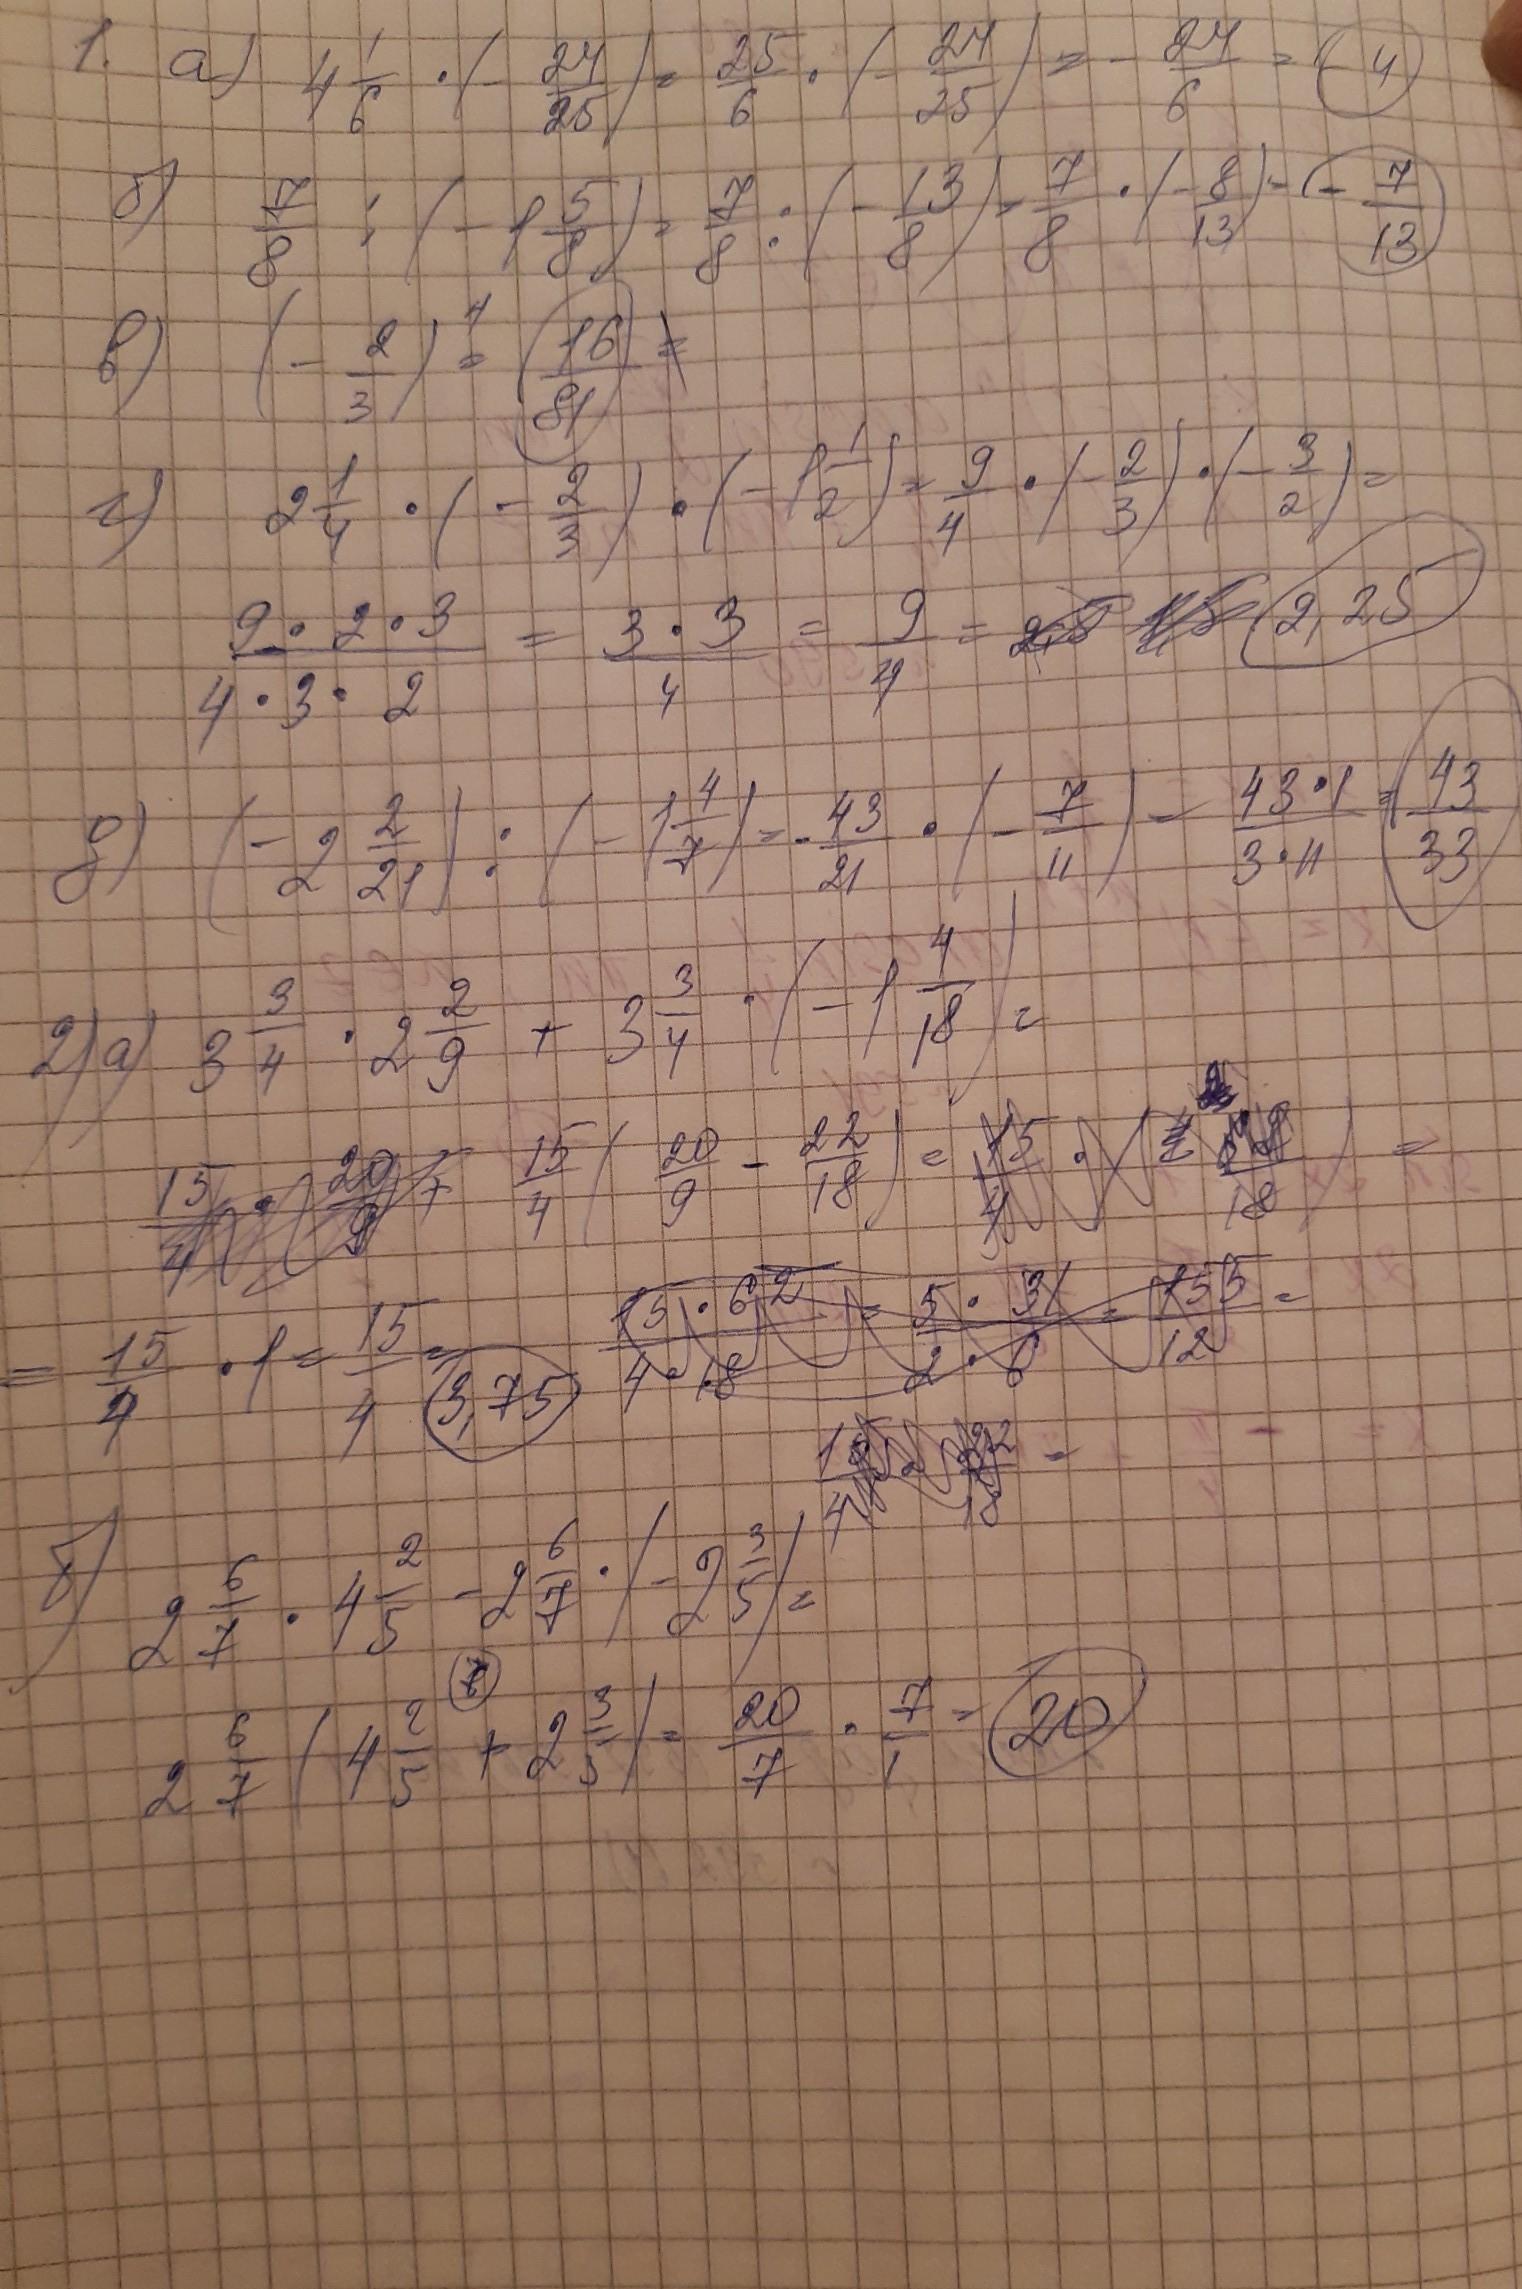 1. а) 4 1/6 · (- 24/25) = 25/6 · (- 24/25) = - 24/6 = (- 4)
б) 7/8 : (- 1 5/8) = 7/8 : (- 13/8) = 7/8 · (- 8/13) = (- 7/13)
в) (- 2/3)^4 = 16/81 =
г) 2 1/4 · (- 2/3) · (- 1 1/2) = 9/4 · (- 2/3) · (- 3/2) =
9 · 2 · 3 / 4 · 3 · 2 = 3 · 3 / 4 = 9/4 = 2,25
д) (- 2 2/21) : (- 1 4/7) = - 43/21 · (- 7/11) = 43 · 1 / 3 · 11 = 43/33
2) а) 3 3/4 · 2 2/9 + 3 3/4 · (- 1 4/18) =
15/4 · 20/9 + 15/4 ( 20/9 - 22/18 ) = 15/4 · /18 ) =
= 15/4 · 1 = 15/4 = 3,75 15 · 62 / 4 · 18 = 5 · 31 / 2 · 6 = 155/12 =
б) 2 6/7 · 4 2/5 - 2 6/7 · (- 2 3/5) =
2 6/7 ( 4 2/5 + 2 3/5 ) = 20/7 · 7/1 = 20